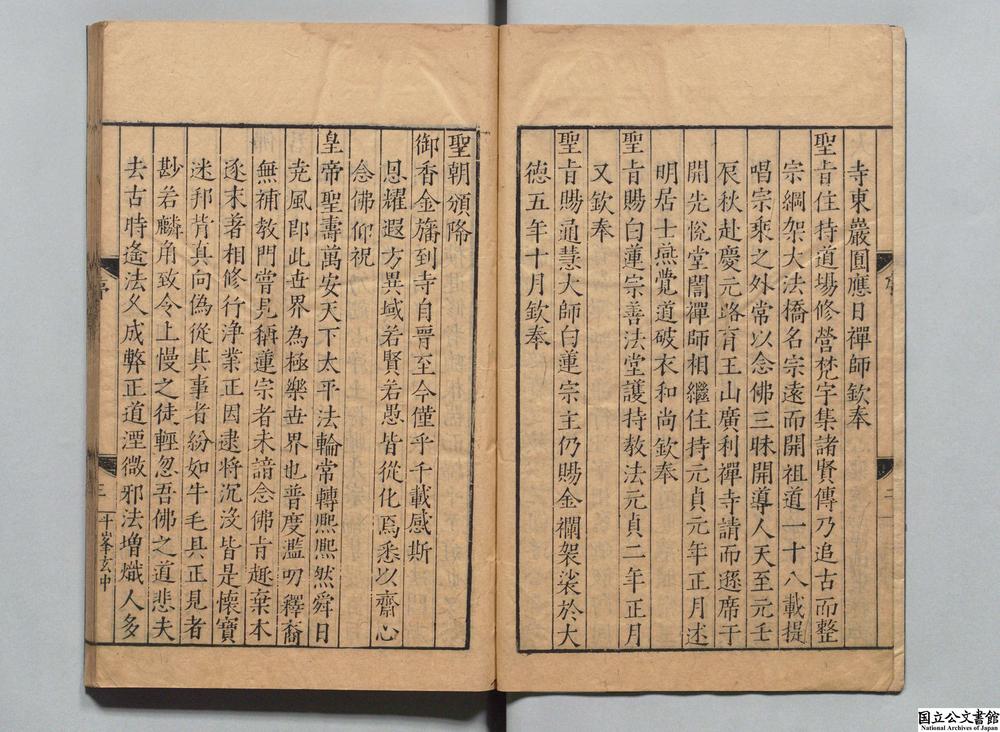 寺東巖囬應日禪師欽奉
聖㫖住持道場修營梵宇集諸賢傳乃追古而整
宗綱架大法橋名宗遠而開祖道一十八載提
唱宗乘之外常以念佛三昧開導人天至元壬
辰秋赴慶元路育王山廣利禪寺請而遜席于
開先悅堂誾禪師相繼住持元貞元年正月述
明居士燕覺道破衣和尚欽奉
聖㫖賜白蓮宗善法堂護持教法元貞二年正月
又欽奉
聖㫖賜通慧大師白蓮宗主仍賜金襴袈裟於大
德五年十月欽奉
聖朝頒降
御香金旛到寺自晉至今僅乎千載感斯
恩耀遐方異域若賢若愚皆從化焉悉以齋心
念佛仰祝
皇帝聖壽萬安天下太平法輪常轉熈熈然舜日
堯風即此世界為極樂世界也普度濫叨釋裔
無補教門嘗見稱蓮宗者未諳念佛㫖趣棄本
逐末著相修行浄業正因逮將沉沒皆是懷寶
迷邦背真向偽從其事者紛如牛毛具正見者
尠若麟角致令上慢之徒輕忽吾佛之道悲夫
去古時遙法久成弊正道湮微邪法增熾人多
序
三
千峯玄中
国立公文書館
National Archives of Japan